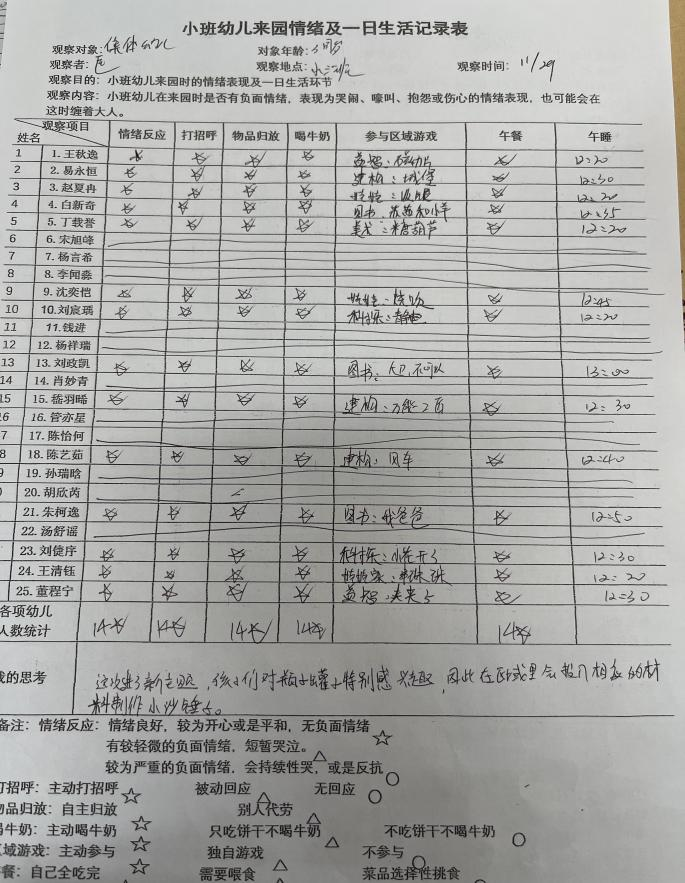 小班幼儿来园情绪及一日生活记录表
观察对象：全体幼儿 对象年龄：3周岁
观察者： 观察地点：小三班 观察时间：11/29
观察目的：小班幼儿来园时的情绪表现及一日生活环节
观察内容：小班幼儿在来园时是否有负面情绪，表现为哭闹、嚎叫、抱怨或伤心的情绪表现，也可能会在
这时缠着大人。
观察项目 姓名 情绪反应 打招呼 物品归放 喝牛奶 参与区域游戏 午餐 午睡
1 1.王秋逸 ☆ ☆ ☆ ☆ 益智：磁力片 ☆ 12:20
2 2.易永恒 ☆ ☆ ☆ ☆ 建构：城堡 ☆ 12:30
3 3.赵夏冉 ☆ ☆ ☆ ☆ ☆ 12:20
4 4.白新奇 ☆ ☆ ☆ ☆ 图书： ☆ 12:35
5 5.丁载誉 ☆ ☆ ☆ ☆ 美工：糖葫芦 ☆ 12:20
6 6.宋旭峰
7 7.杨言希
8 8.李闻淼
9 9.沈奕恺 ☆ ☆ ☆ ☆ ☆ 12:45
10 10.刘宸瑀 ☆ ☆ ☆ ☆ 科探： ☆ 12:20
11 11.钱进
12 12.杨祥瑞
13 13.刘政凯 ☆ ☆ ☆ ☆ 图书：大卫，不可以 ☆ 13:00
14 14.肖妙青
15 15.嵇羽晞 ☆ ☆ ☆ ☆ 建构：万能工匠 ☆ 12:30
16 16.管亦星
7 17.陈怡何
8 18.陈艺茹 ☆ ☆ ☆ ☆ 建构：风车 ☆ 12:40
9 19.孙瑞晗
20.胡欣芮
21.朱柯逸 ☆ ☆ ☆ ☆ 图书：我爸爸 ☆ 12:50
22.汤舒谣
23.刘倢序 ☆ ☆ ☆ ☆ 科探：小花开了 ☆ 12:30
24.王清钰 ☆ ☆ ☆ ☆ 娃娃家：串珠珠 ☆ 12:20
25.董程宁 ☆ ☆ ☆ ☆ 益智：夹夹乐 ☆ 12:30
各项幼儿
人数统计 14☆ 14☆ 14☆ 14☆ 14☆
我的思考 这次换了新主题，孩子们对瓶子罐子特别感兴趣，因此在区域里会投入相应的材
料制作小沙锤等。
备注：情绪反应：情绪良好，较为开心或是平和，无负面情绪 ☆
有较轻微的负面情绪，短暂哭泣。△
较为严重的负面情绪，会持续性哭，或是反抗 ○
打招呼：主动打招呼 ☆ 被动回应 △ 无回应 ○
物品归放：自主归放 ☆ 别人代劳 △
喝牛奶：主动喝牛奶 ☆ 只吃饼干不喝牛奶 △ 不吃饼干不喝牛奶 ○
区域游戏：主动参与 ☆ 独自游戏 △ 不参与 ○
午餐：自己全吃完 ☆ 需要喂食 △ 菜品选择性挑食 ○